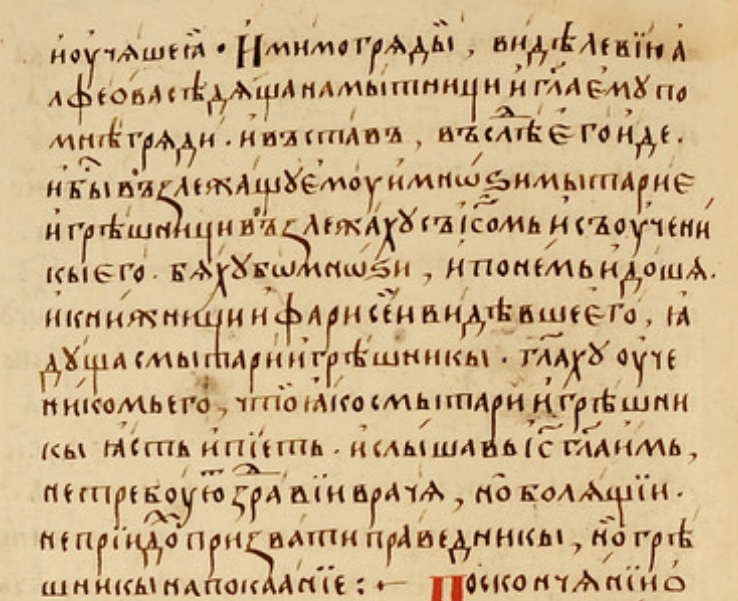 и҆ оучѧше сѧ҃ · И҆ мимогрѧды̀ , видѣ левї́ю а҆
лфеова сѣдѧща на мытници и҆ гл҃а є҆мꙋ по
мнѣ грѧди · и҆ въставъ , въ слѣⷣ є҆го и҆де .
и҆ быⷭ҇ възлежащꙋ є҆моу и҆ мноѕи мытарїе
и҆ грѣшници възлежахꙋ съ іс҃омь и҆ съ оучени
кы є҆го · бѧхꙋ бѡ мнѡѕи , и҆ по немь и҆дошѧ .
и҆ книжници и҆ фарисеи видѣвше є҆го , ꙗ
дꙋща с мытари и҆ грѣшникы · гл҃ахꙋ оуче
никомь его , что ꙗко с мытари и҆ грѣшни
кы ꙗсть и҆ пїеть · и҆ слышавь іс҃ гл҃а и҆мь ,
не требоуюⷮ здравїи врачѧ , но болѧщїи .
не прїидоⷯ призвати праведникы , но грѣ
шникы на покаанїе : ~ По сконьчѧнїи ѻ